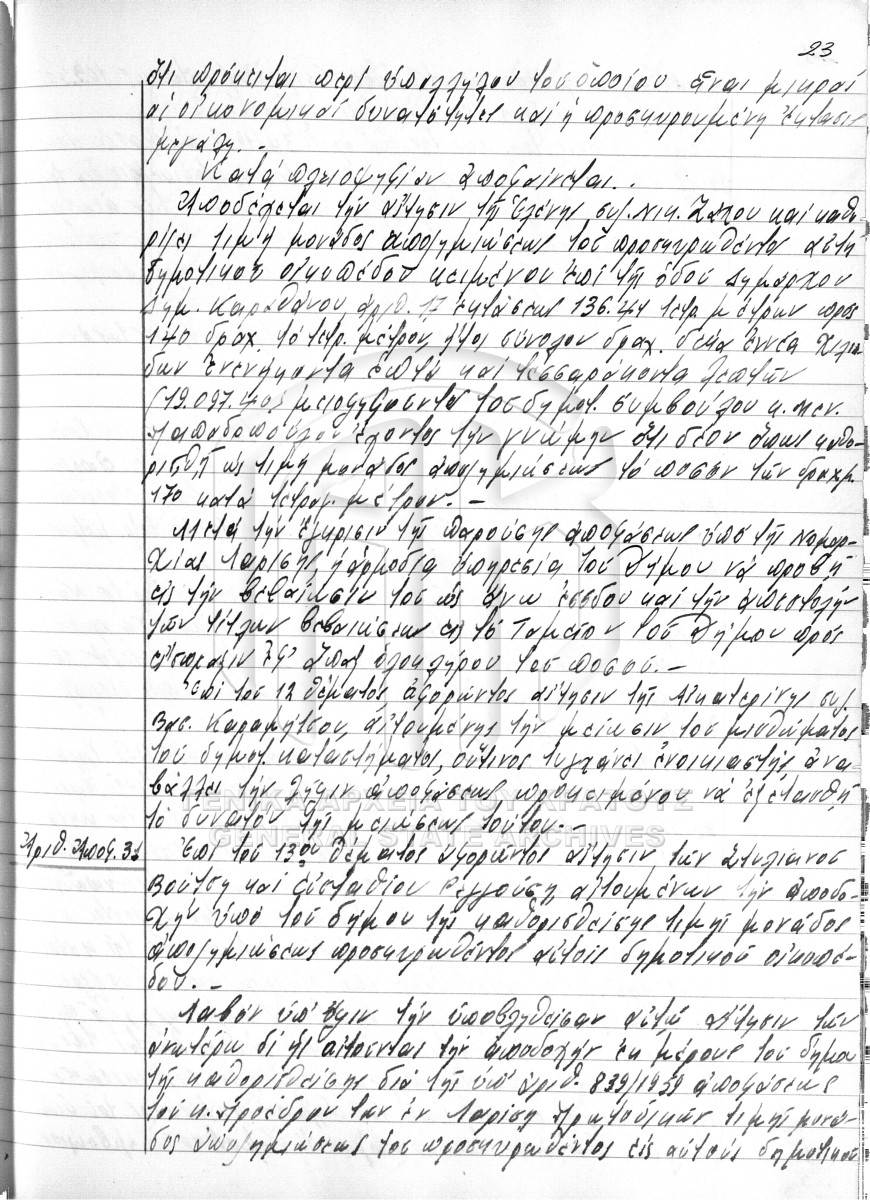 23
ὅτι πρόκειται περί ὑπαλλήλου τοῦ ὁποίου εἶναι μικραί
αἱ οἰκονομικαί δυνατότητες καί ἡ προσκυρουμένη ἔκτασις
μεγάλη. -
Κατά πλειοψηφίαν ἀποφαίνεται.
Ἀποδέχεται τήν αἴτησιν τῆς Ἑλένης συζ. Νικ. καί καθο-
ρίζει τιμή μονάδος ἀποζημιώσεως τοῦ προσκυρωθέντος αὐτῇ
δημοτικοῦ οἰκοπέδου κειμένου ἐπί τῆς ὁδοῦ Δημάρχου
Δημ. Καραθάνου ἀριθ. 17 ἐκτάσεως 136.41 τετρ. μέτρων πρός
140 δραχ. τό τετρ. μέτρον, ἤτοι σύνολον δραχ. δέκα ἐννέα χιλιά-
δων ἐνενήκοντα ἑπτά καί τεσσαράκοντα λεπτῶν
(19.097.40) μειοψηφοῦντος τοῦ δημοτ. συμβούλου κ.
Παπαδοπούλου ἔχοντος τήν γνώμην ὅτι δέον ὅπως καθο-
ρισθῇ ὡς τιμή μονάδος ἀποζημιώσεως τό ποσόν τῶν δραχμ.
170 κατά τετραγ. μέτρον. -
Μετά τήν ἔγκρισιν τῆς παρούσης ἀποφάσεως ὑπό τῆς Νομαρ-
χίας Λαρίσης ἡ ἁρμοδία ὑπηρεσία τοῦ Δήμου νά προβῇ
εἰς τήν βεβαίωσιν τοῦ ὡς ἄνω ἐσόδου καί τήν ἀποστολήν
τῶν τίτλων βεβαιώσεως εἰς τό Ταμεῖον τοῦ Δήμου πρός
εἴσπραξιν ἐφ' ἅπαξ ὁλοκλήρου τοῦ ποσοῦ. -
Ἐπί τοῦ 12 θέματος ἀφορῶντος αἴτησιν τῆς Αἰκατερίνης συζ.
Βασ. Καραμήτσου, αἰτουμένης τήν μείωσιν τοῦ μισθώματος
τοῦ δημοτ. καταστήματος, οὗτινος τυγχάνει ἐνοικιαστής ἀνα-
βάλλει τήν λῆψιν ἀποφάσεως προκειμένου νά ἐξετασθῇ
τό δυνατόν τῆς μειώσεως τούτου. -
Ἀριθ. Ἀποφ. 31
Ἐπί τοῦ 13ου θέματος ἀφορῶντος αἴτησιν τῶν Στυλιανοῦ
Βούτση καί Εὐσταθίου αἰτουμένων τήν ἀποδο-
χήν ὑπό τοῦ δήμου τῆς καθορισθείσης τιμῆς μονάδος
ἀποζημιώσεως προσκυρωθέντος αὐτοῖς δημοτικοῦ οἰκοπέ-
δου. -
Λαβόν ὑπ' ὄψιν τήν ὑποβληθεῖσαν αὐτῷ αἴτησιν τῶν
ἀνωτέρω δι' ἧς αἰτοῦνται τήν ἀποδοχήν ἐκ μέρους τοῦ δήμου
τῆς καθορισθείσης διά τῆς ὑπ' ἀριθ. 839/1959 ἀποφάσεως
τοῦ κ. Προέδρου τῶν ἐν Λαρίσῃ Πρωτοδικῶν τιμῆς μονά-
δος ἀποζημιώσεως τοῦ προσκυρωθέντος εἰς αὐτούς δημοτικοῦ
ΓΕΝΙΚΑ ΑΡΧΕΙΑ ΤΟΥ ΚΡΑΤΟΥΣ
GENERAL STATE ARCHIVES